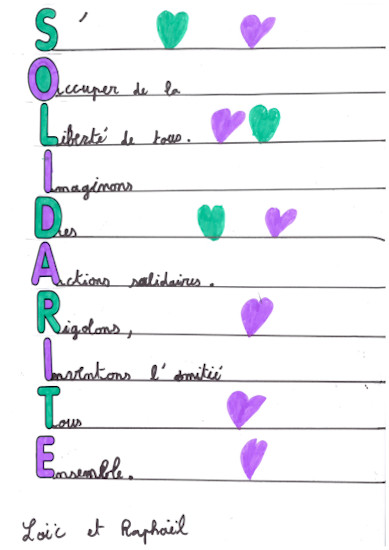 S'
Occuper de la
Liberté de tous.
Imaginons
Des
Actions solidaires.
Rigolons,
Inventons l'amitié
Tous
Ensemble.
Loïc et Raphaël